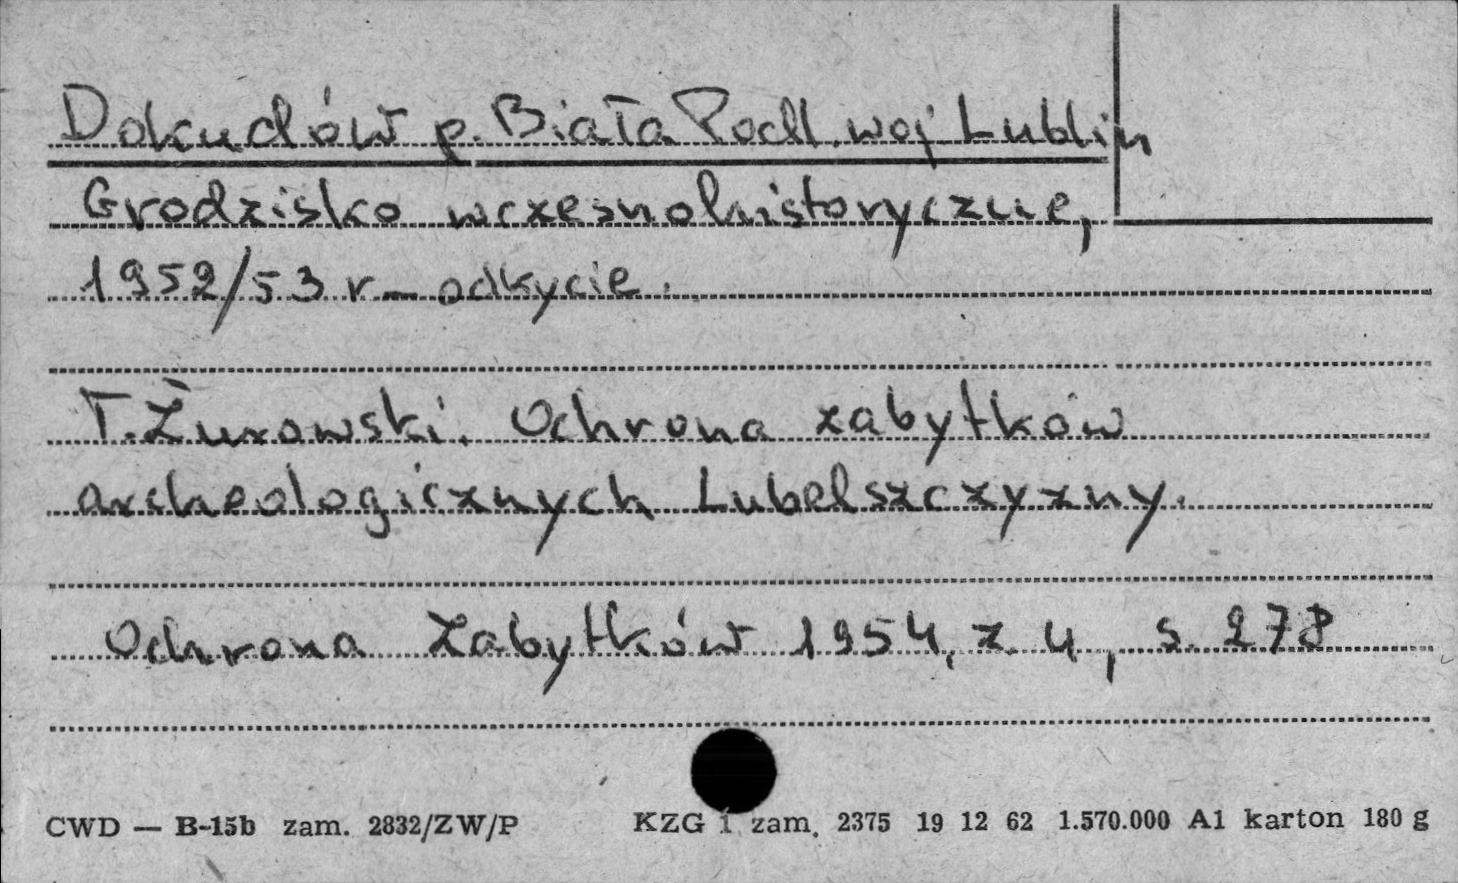 Dokudów p. Biała Podl. woj Lublin
Grodzisko wczesnohistoryczne,
1952/53 r – odkycie.
T. Żurowski. Ochrona zabytków
archeologicznych Lubelszczyzny.
Ochrona Zabytków 1954, z. 4, s. 278
CWD — B-15b zam. 2832/ZW/P KZG 1 zam. 2375 19 12 62 1.570.000 A1 karton 180 g